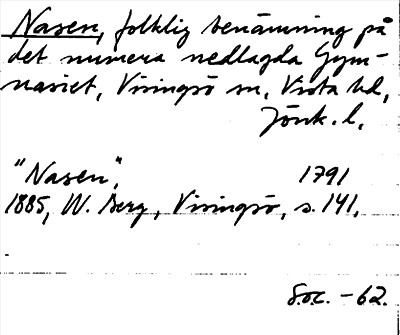 Nasen, folklig benämning på
det numera nedlagda Gym-
nasiet, Visingsö sn, Vista hd,
Jönk. l.
"Nasen", 1791
1885, W. Berg, Visingsö, s. 141.
S.o.c. -62.